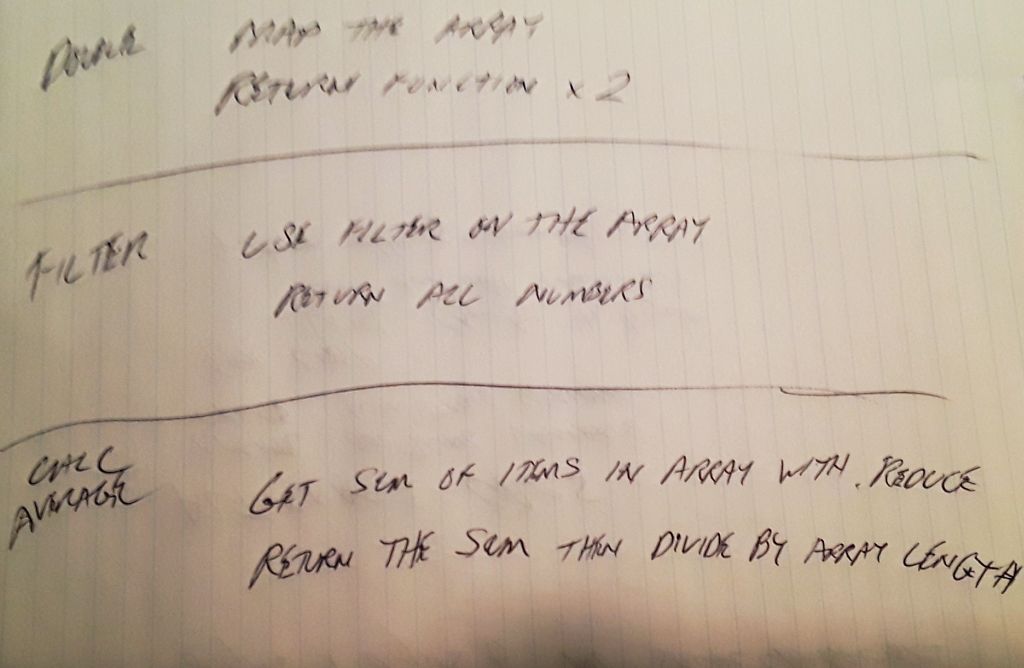 DOUBLE MAP THE ARRAY
RETURN FUNCTION x 2
FILTER USE FILTER ON THE ARRAY
RETURN ALL NUMBERS
CALC AVERAGE GET SUM OF ITEMS IN ARRAY WITH .REDUCE
RETURN THE SUM THEN DIVIDE BY ARRAY LENGTH